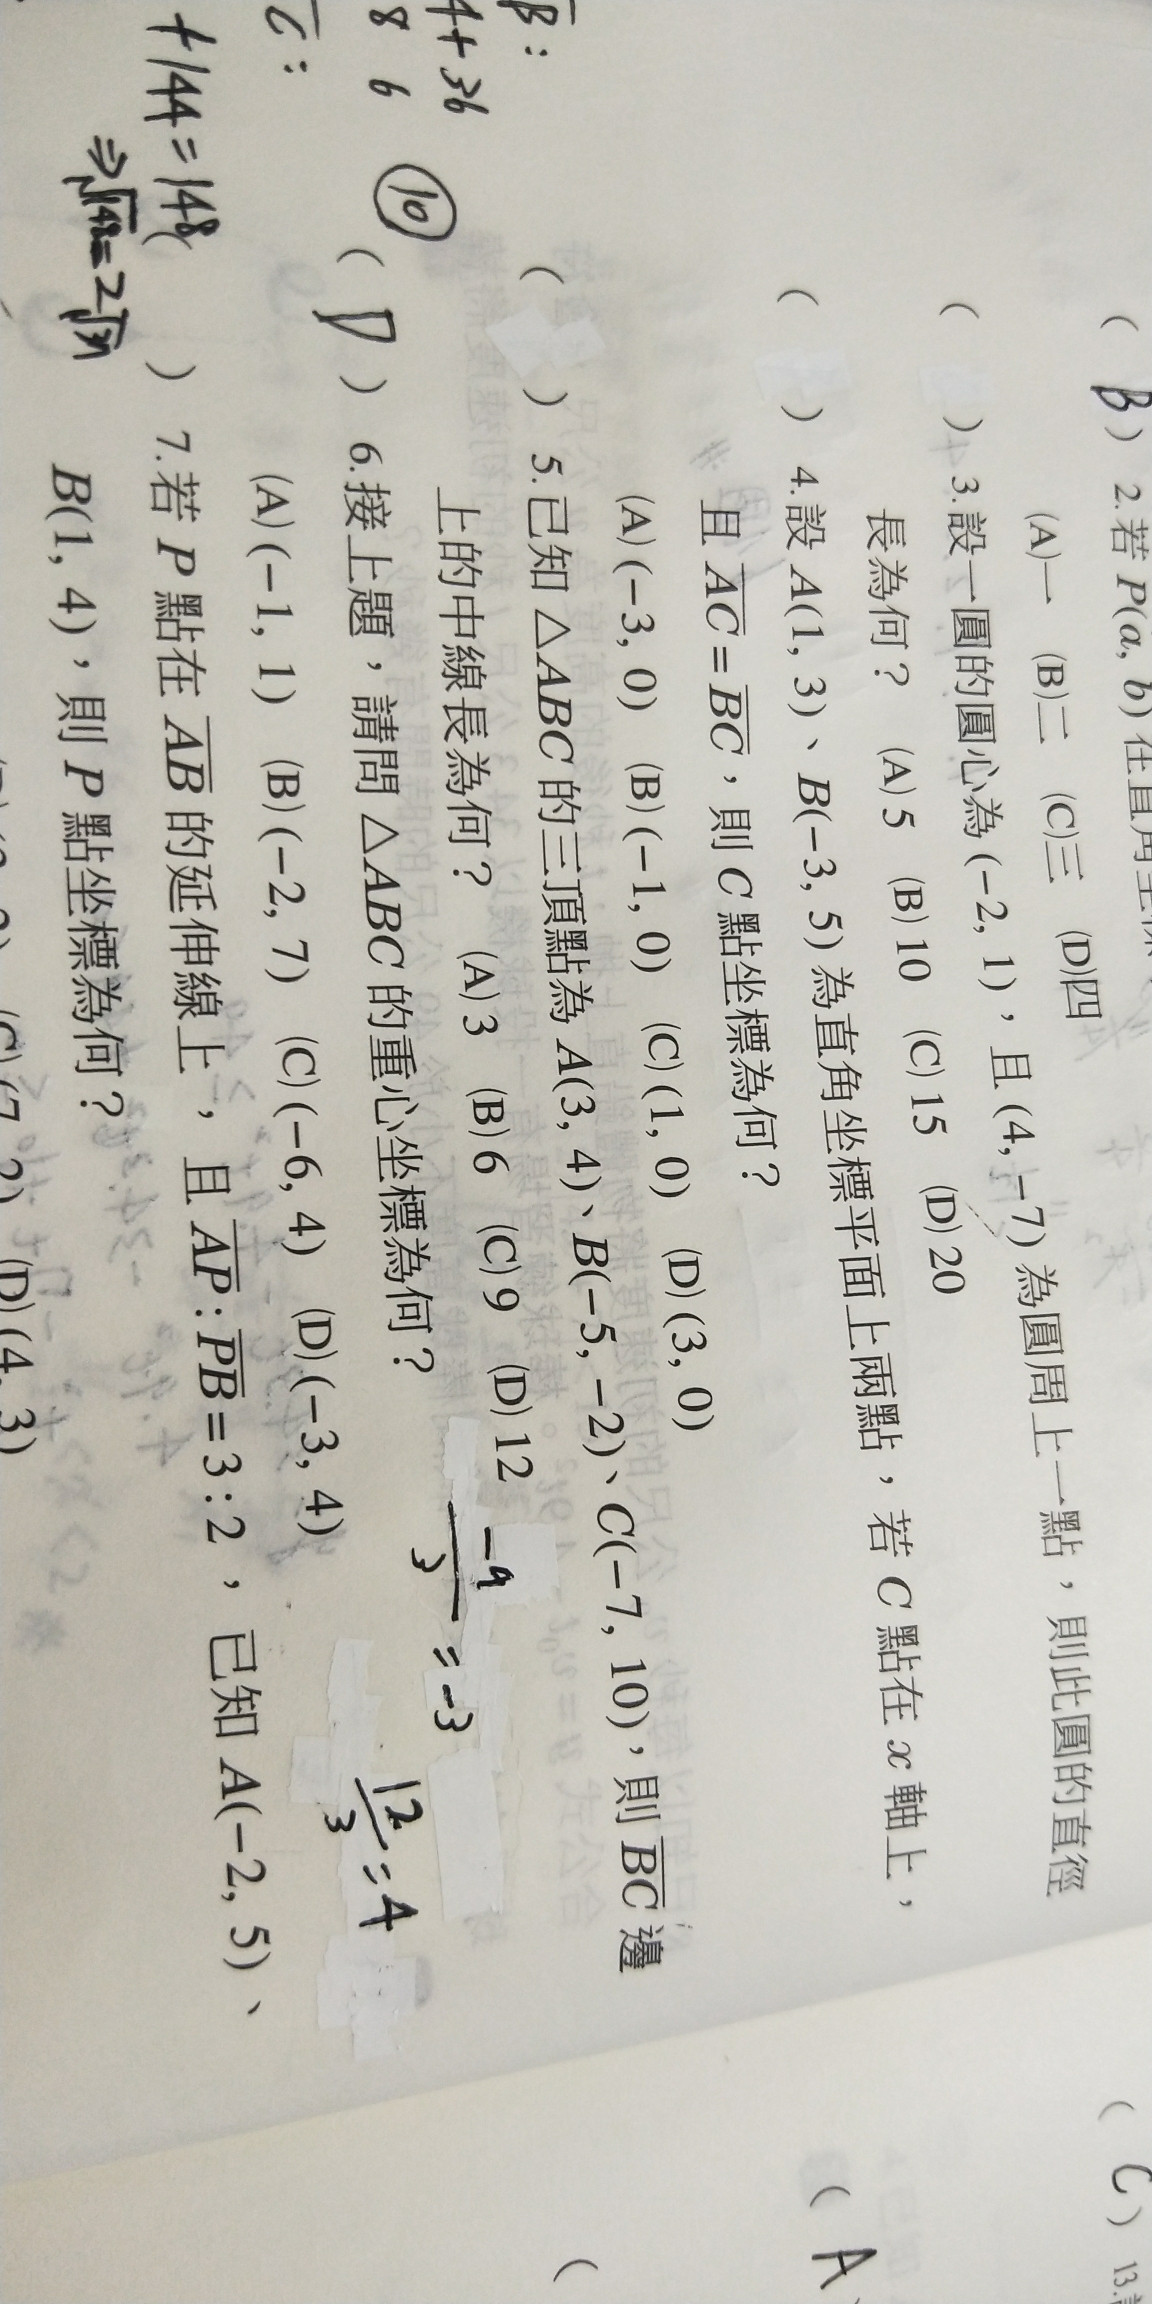 ( B ) 2.若 P(a, b) 在直角坐標
(A)一 (B)二 (C)三 (D)四
( ) 3.設一圓的圓心為 (−2, 1)，且 (4, −7) 為圓周上一點，則此圓的直徑
長為何？ (A) 5 (B) 10 (C) 15 (D) 20
( ) 4.設 A(1, 3)、B(−3, 5) 為直角坐標平面上兩點，若 C 點在 x 軸上，
且 AC = BC，則 C 點坐標為何？
(A) (−3, 0) (B) (−1, 0) (C) (1, 0) (D) (3, 0)
( ) 5.已知 △ABC 的三頂點為 A(3, 4)、B(−5, −2)、C(−7, 10)，則 BC 邊
上的中線長為何？ (A) 3 (B) 6 (C) 9 (D) 12
( D ) 6.接上題，請問 △ABC 的重心坐標為何？
(A) (−1, 1) (B) (−2, 7) (C) (−6, 4) (D) (−3, 4)
( ) 7.若 P 點在 AB 的延伸線上，且 AP : PB = 3 : 2，已知 A(−2, 5)、
B(1, 4)，則 P 點坐標為何？
(C) (7, 2) (D) (4, 3)
B :
4+36
8 6 10
C :
+144=148
⇒√148=2√37
−9/3 = −3
12/3 = 4
( C ) 13.
( A
(